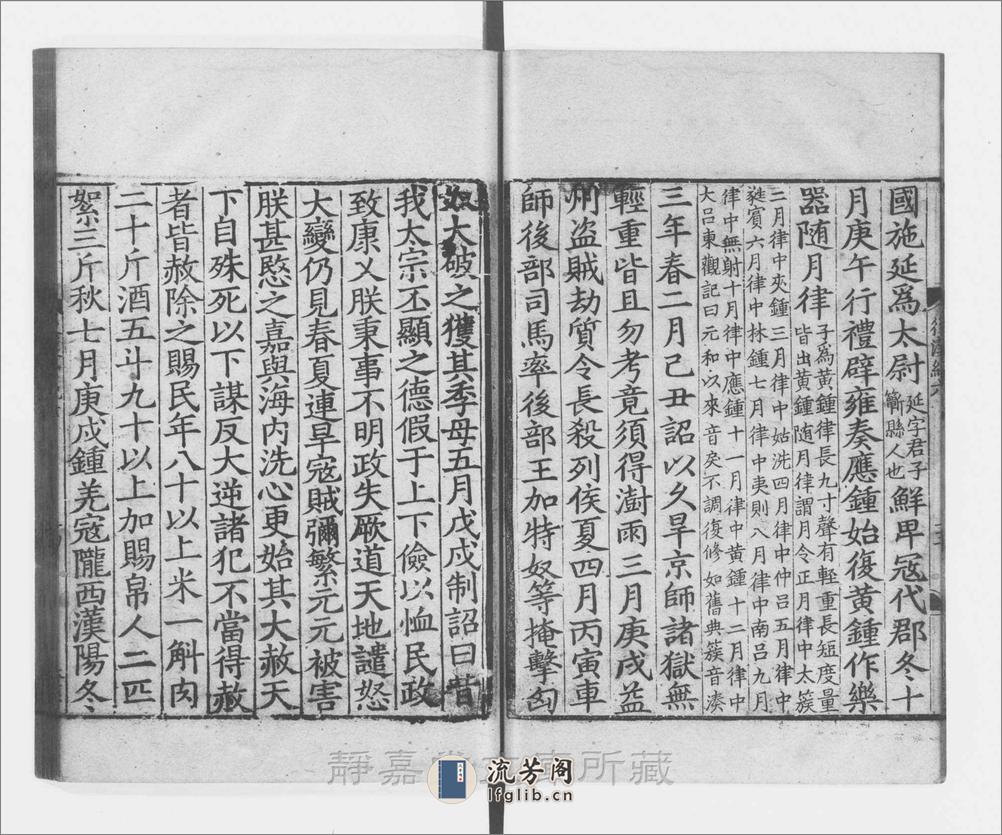 國施延爲太尉延字君子蘄縣人也鮮卑寇代郡冬十
月庚午行禮辟雍奏應鍾始復黃鍾作樂
器随月律子爲黃鍾律長九寸聲有輕重長短度量皆出黃鍾随月律謂月令正月律中太簇
二月律中夾鍾三月律中姑洗四月律中仲呂五月律中
蕤賓六月律中林鍾七月律中夷則八月律中南呂九月
律中無射十月律中應鍾十一月律中黃鍾十二月律中
大呂東觀記曰元和以來音戾不調復修如舊典簇音湊
三年春二月己丑詔以久旱京師諸獄無
輕重皆且勿考竟須得澍雨三月庚戌益
州盜賊劫質令長殺列侯夏四月丙寅車
師後部司馬率後部王加特奴等掩擊匈
奴大破之獲其季母五月戊戌制詔曰昔
我太宗丕顯之德假于上下儉以恤民政
致康乂朕秉事不明政失厥道天地譴怒
大變仍見春夏連旱寇賊彌繁元元被害
朕甚愍之嘉與海内洗心更始其大赦天
下自殊死以下謀反大逆諸犯不當得赦
者皆赦除之賜民年八十以上米一斛肉
二十斤酒五斗九十以上加賜帛人二匹
絮三斤秋七月庚戌鍾羌寇隴西漢陽冬
靜嘉堂文庫所藏
流芳阁
lfglib.cn